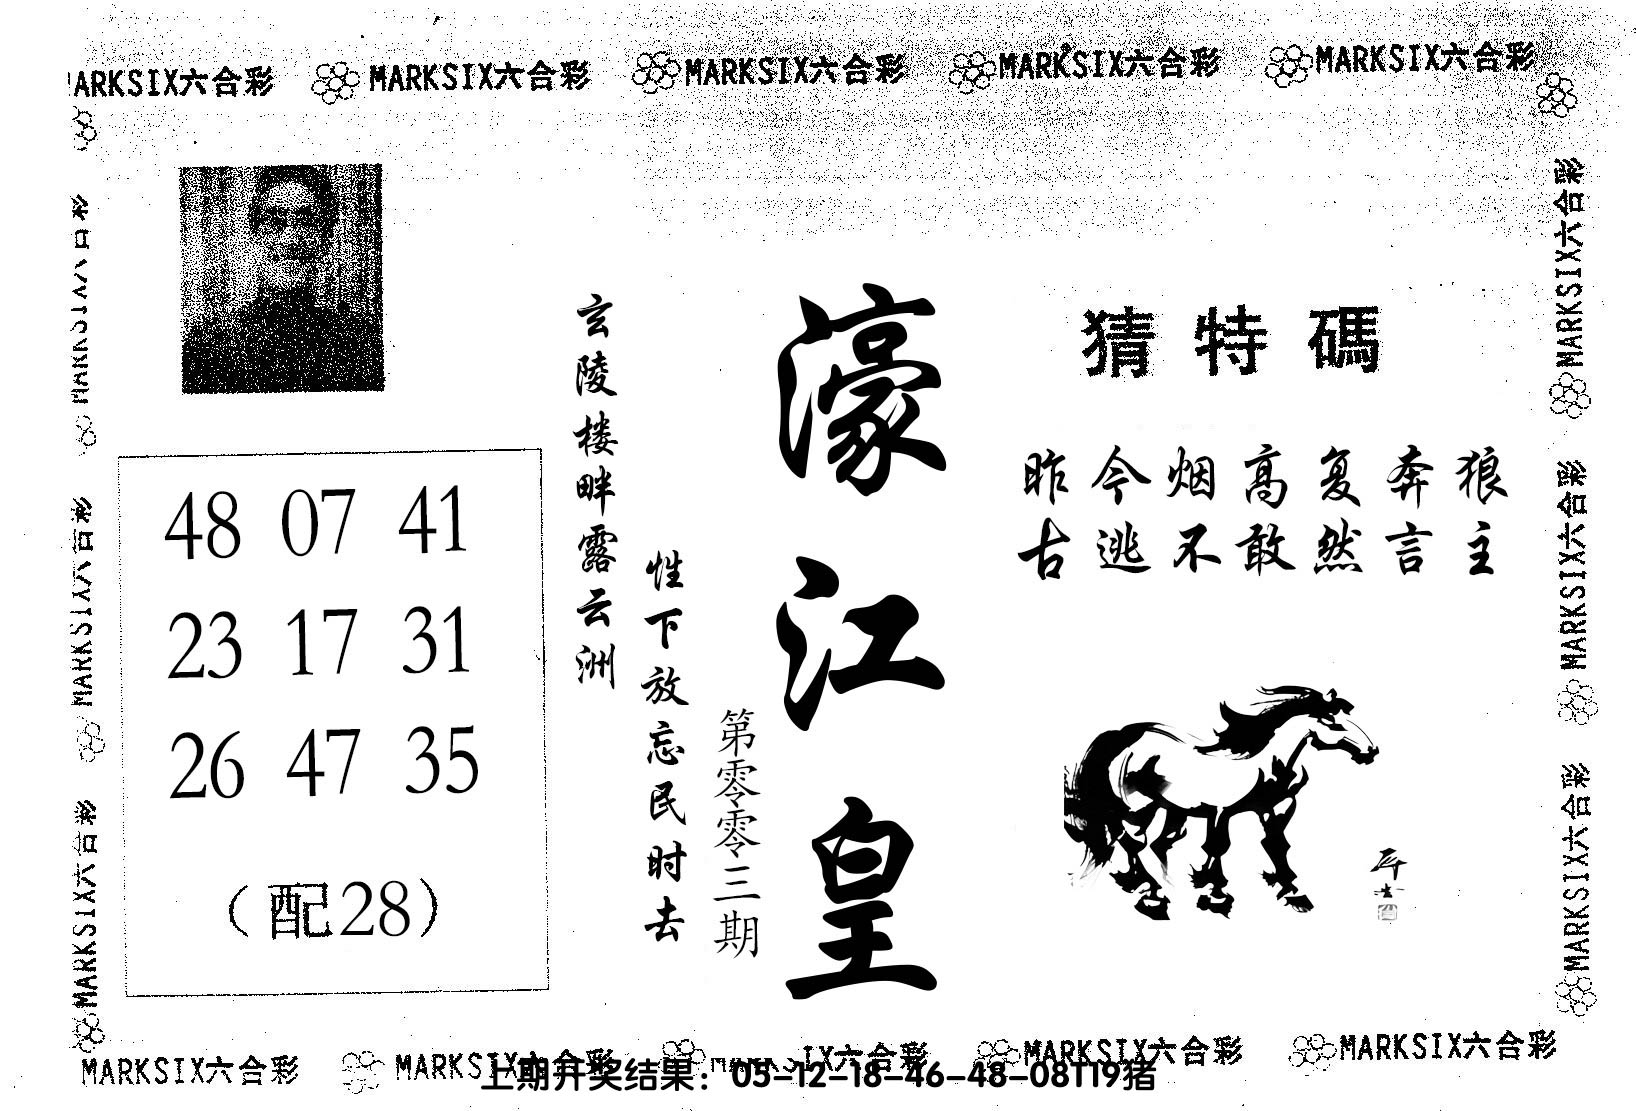 MARKSIX六合彩 MARKSIX六合彩 MARKSIX六合彩 MARKSIX六合彩 MARKSIX六合彩
MARKSIX六合彩
MARKSIX六合彩
MARKSIX六合彩
MARKSIX六合彩
MARKSIX六合彩
MARKSIX六合彩
48 07 41
23 17 31
26 47 35
(配28)
玄陵楼畔露云洲
性下放忘民时去
第零零三期
濠江皇
猜特碼
昨今烟高复奔狼
古逃不敢然言主
MARKSIX六合彩 MARKSIX六合彩 MARKSIX六合彩 MARKSIX六合彩 MARKSIX六合彩
上期开奖结果：05-12-18-46-48-08T19猪